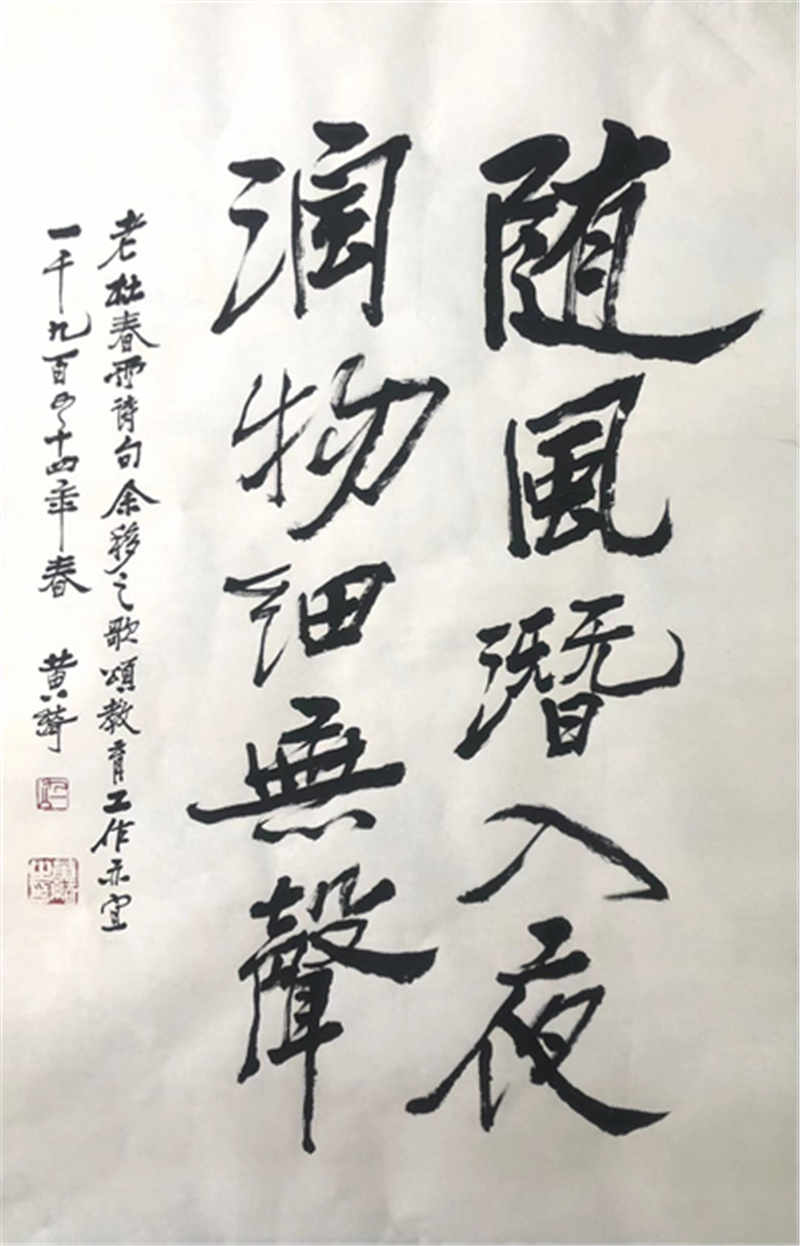 随風潛入夜
潤物細無聲
老杜春雨詩句余移之歌頌教育工作亦宜
一千九百十四年春 黄綺